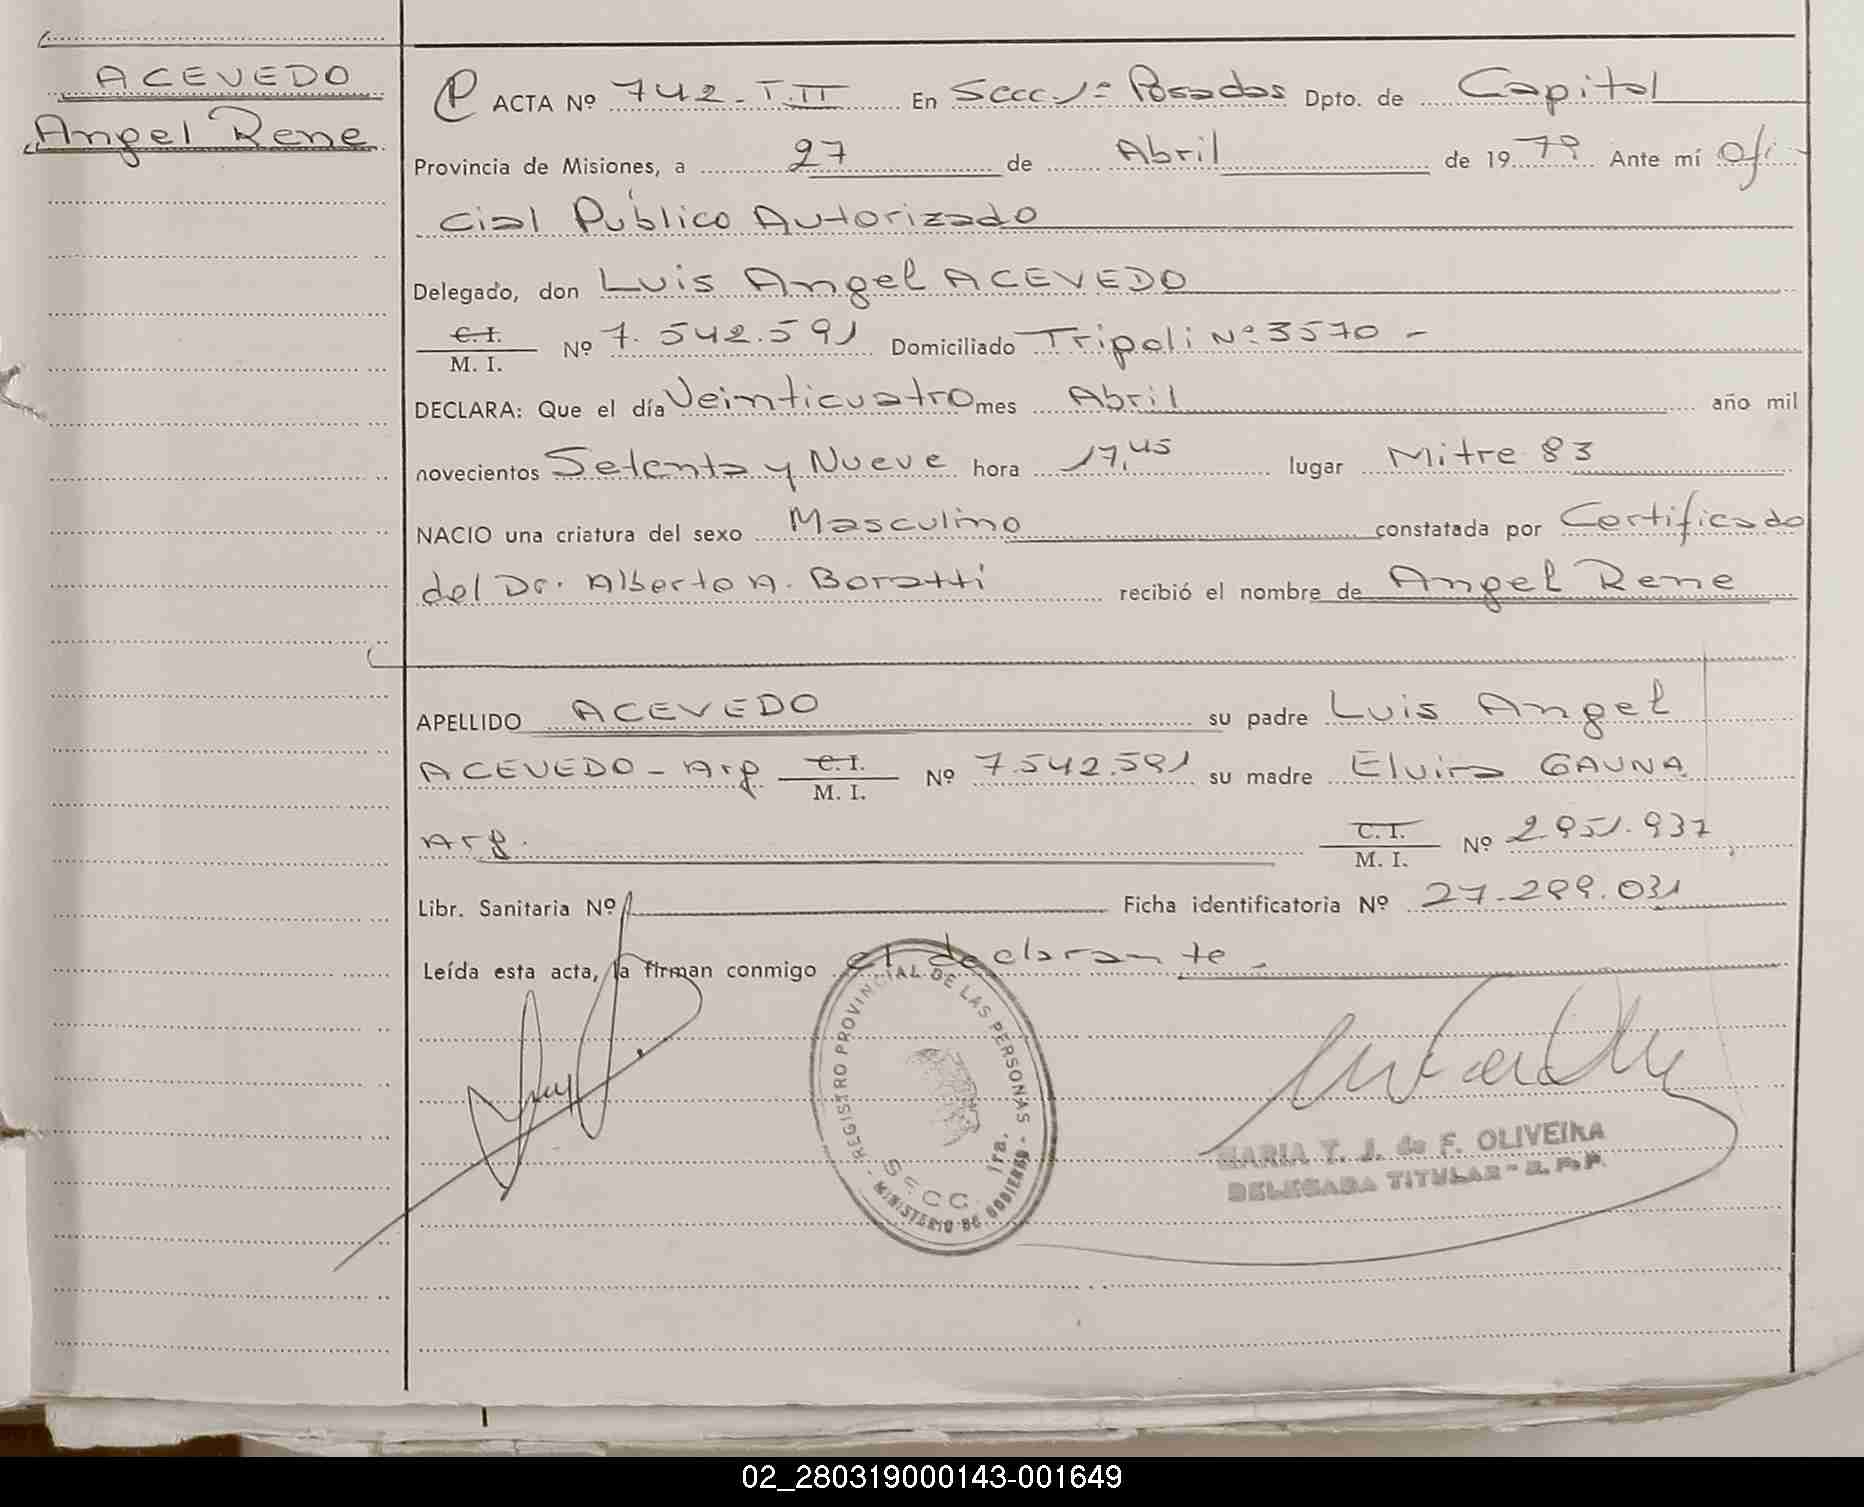 ACEVEDO
Angel Rene
P ACTA Nº 742-T II En Secc. 1ª Posadas Dpto. de Capital
Provincia de Misiones, a 27 de Abril de 1979 Ante mí Ofi-
cial Público Autorizado
Delegado, don Luis Angel ACEVEDO
C. I. / M. I. Nº 7.542.591 Domiciliado Tripoli Nº 3570 -
DECLARA: Que el día Veinticuatro mes Abril año mil
novecientos Setenta y Nueve hora 17,45 lugar Mitre 83
NACIO una criatura del sexo Masculino constatada por Certificado
del Dr. Alberto A. Boratti recibió el nombre de Angel Rene
APELLIDO ACEVEDO su padre Luis Angel
ACEVEDO - Arg C. I. / M. I. Nº 7.542.591 su madre Elvira GAUNA
Arg. C. I. / M. I. Nº 2.951.937
Libr. Sanitaria Nº Ficha identificatoria Nº 27.299.031
Leída esta acta, la firman conmigo el declarante -
REGISTRO PROVINCIAL DE LAS PERSONAS
SECC. 1ra.
MINISTERIO DE GOBIERNO
MARIA T. J. de F. OLIVEIRA
DELEGADA TITULAR - R. P. P.
02_280319000143-001649